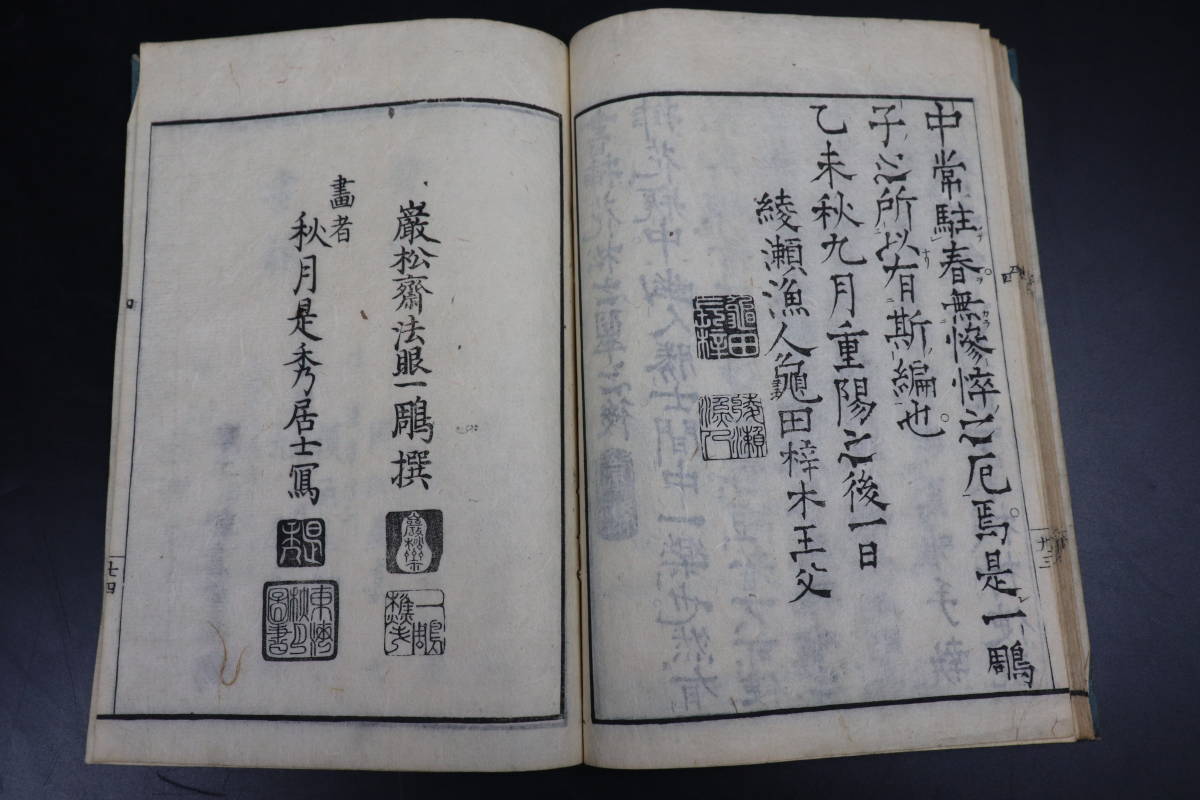 中常駐春無慘悴之厄焉是一鵰
子之所以有斯編也
乙未秋九月重陽之後一日
綾瀬漁人龜田梓木王父
龜田
長梓
綾瀬
漁人
巖松齋法眼一鵰撰
畫者
秋月是秀居士寫
一鵰
七四